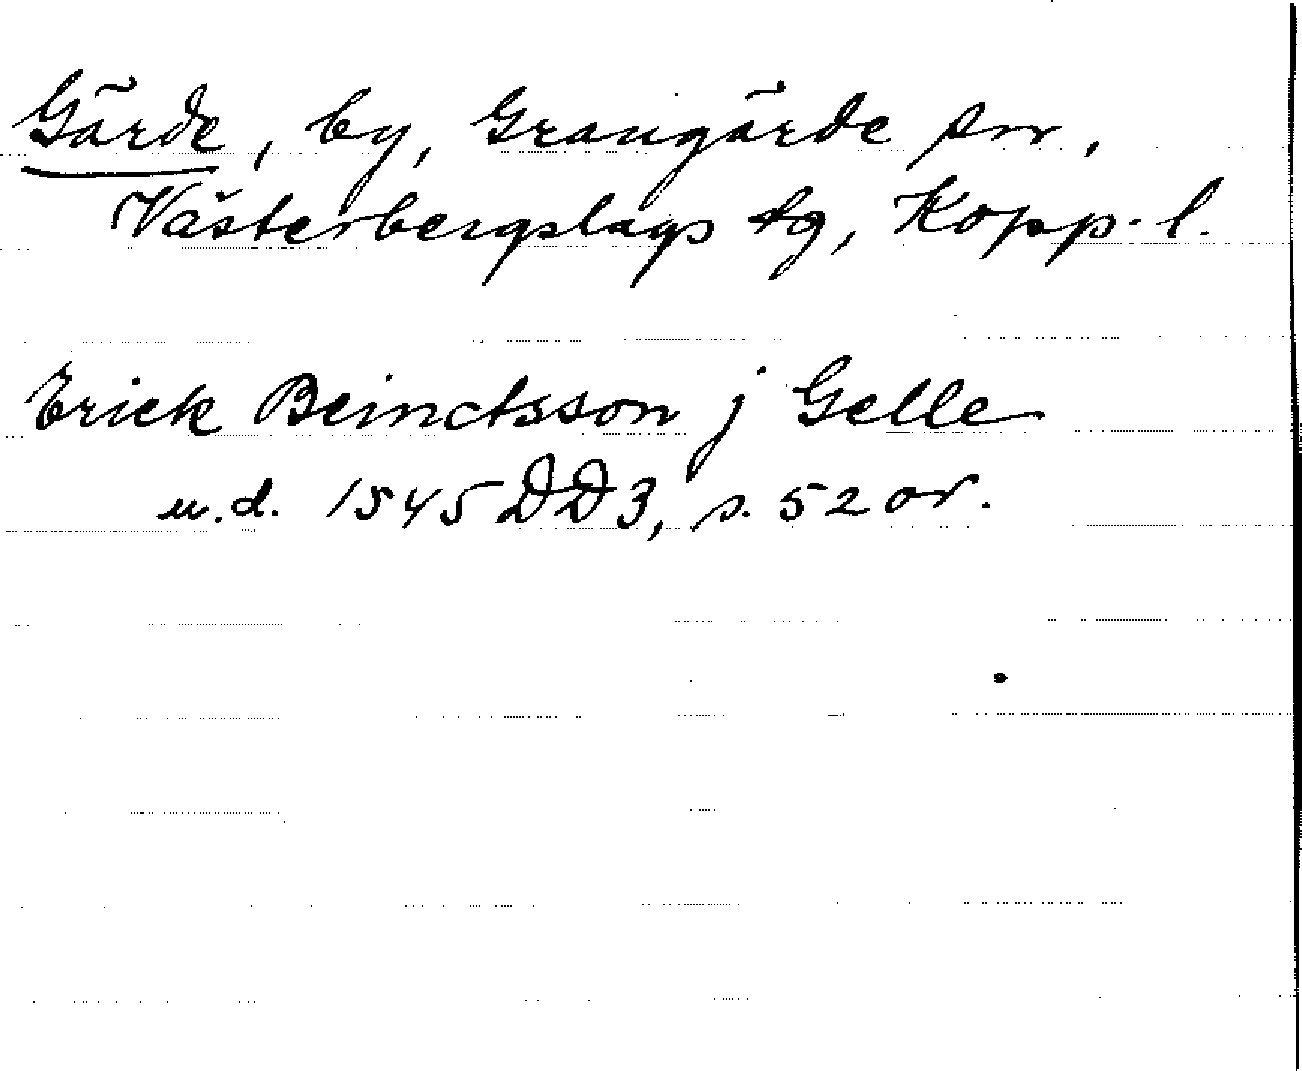 Gärde, by, Grangärde snr,
Västerbergslags tg, Kopp. l.
Erick Beinctsson j Gelle
u.d. 1545 DD3, s. 52 or.